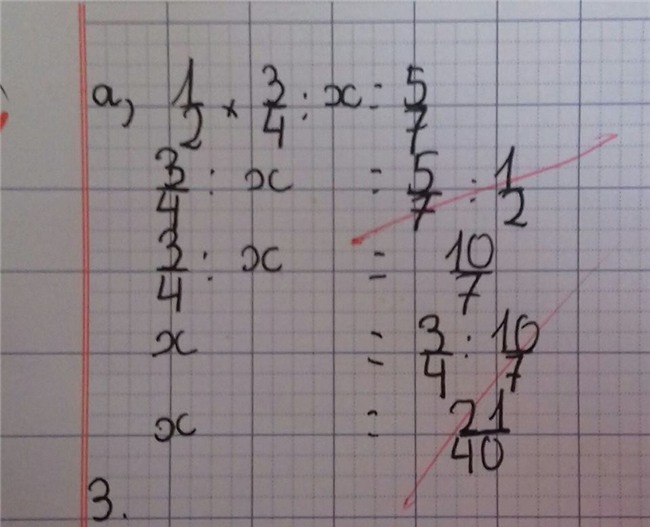 a, 1/2 × 3/4 : x = 5/7
3/4 : x = 5/7 : 1/2
3/4 : x = 10/7
x = 3/4 : 10/7
x = 21/40
3.